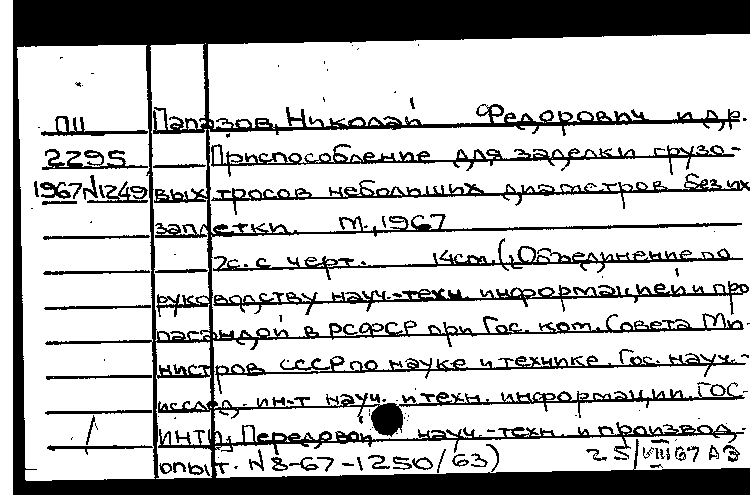 П11 Папазов, Николай Федорович и др.
2295 Приспособление для заделки грузо-
1967 N1249 вых тросов небольших диаметров без их
заплетки. М., 1967
2с. с черт. 14см. (Объединение по
руководству науч.-техн. информацией и про
пагандой в РСФСР при Гос. ком. Совета Ми-
нистров СССР по науке и технике. Гос. науч.-
исслед. ин-т науч. и техн. информации. ГОС-
ИНТИ, Передовой науч.-техн. и производ.
опыт. N 8-67-1250/63) 25/VIII 67